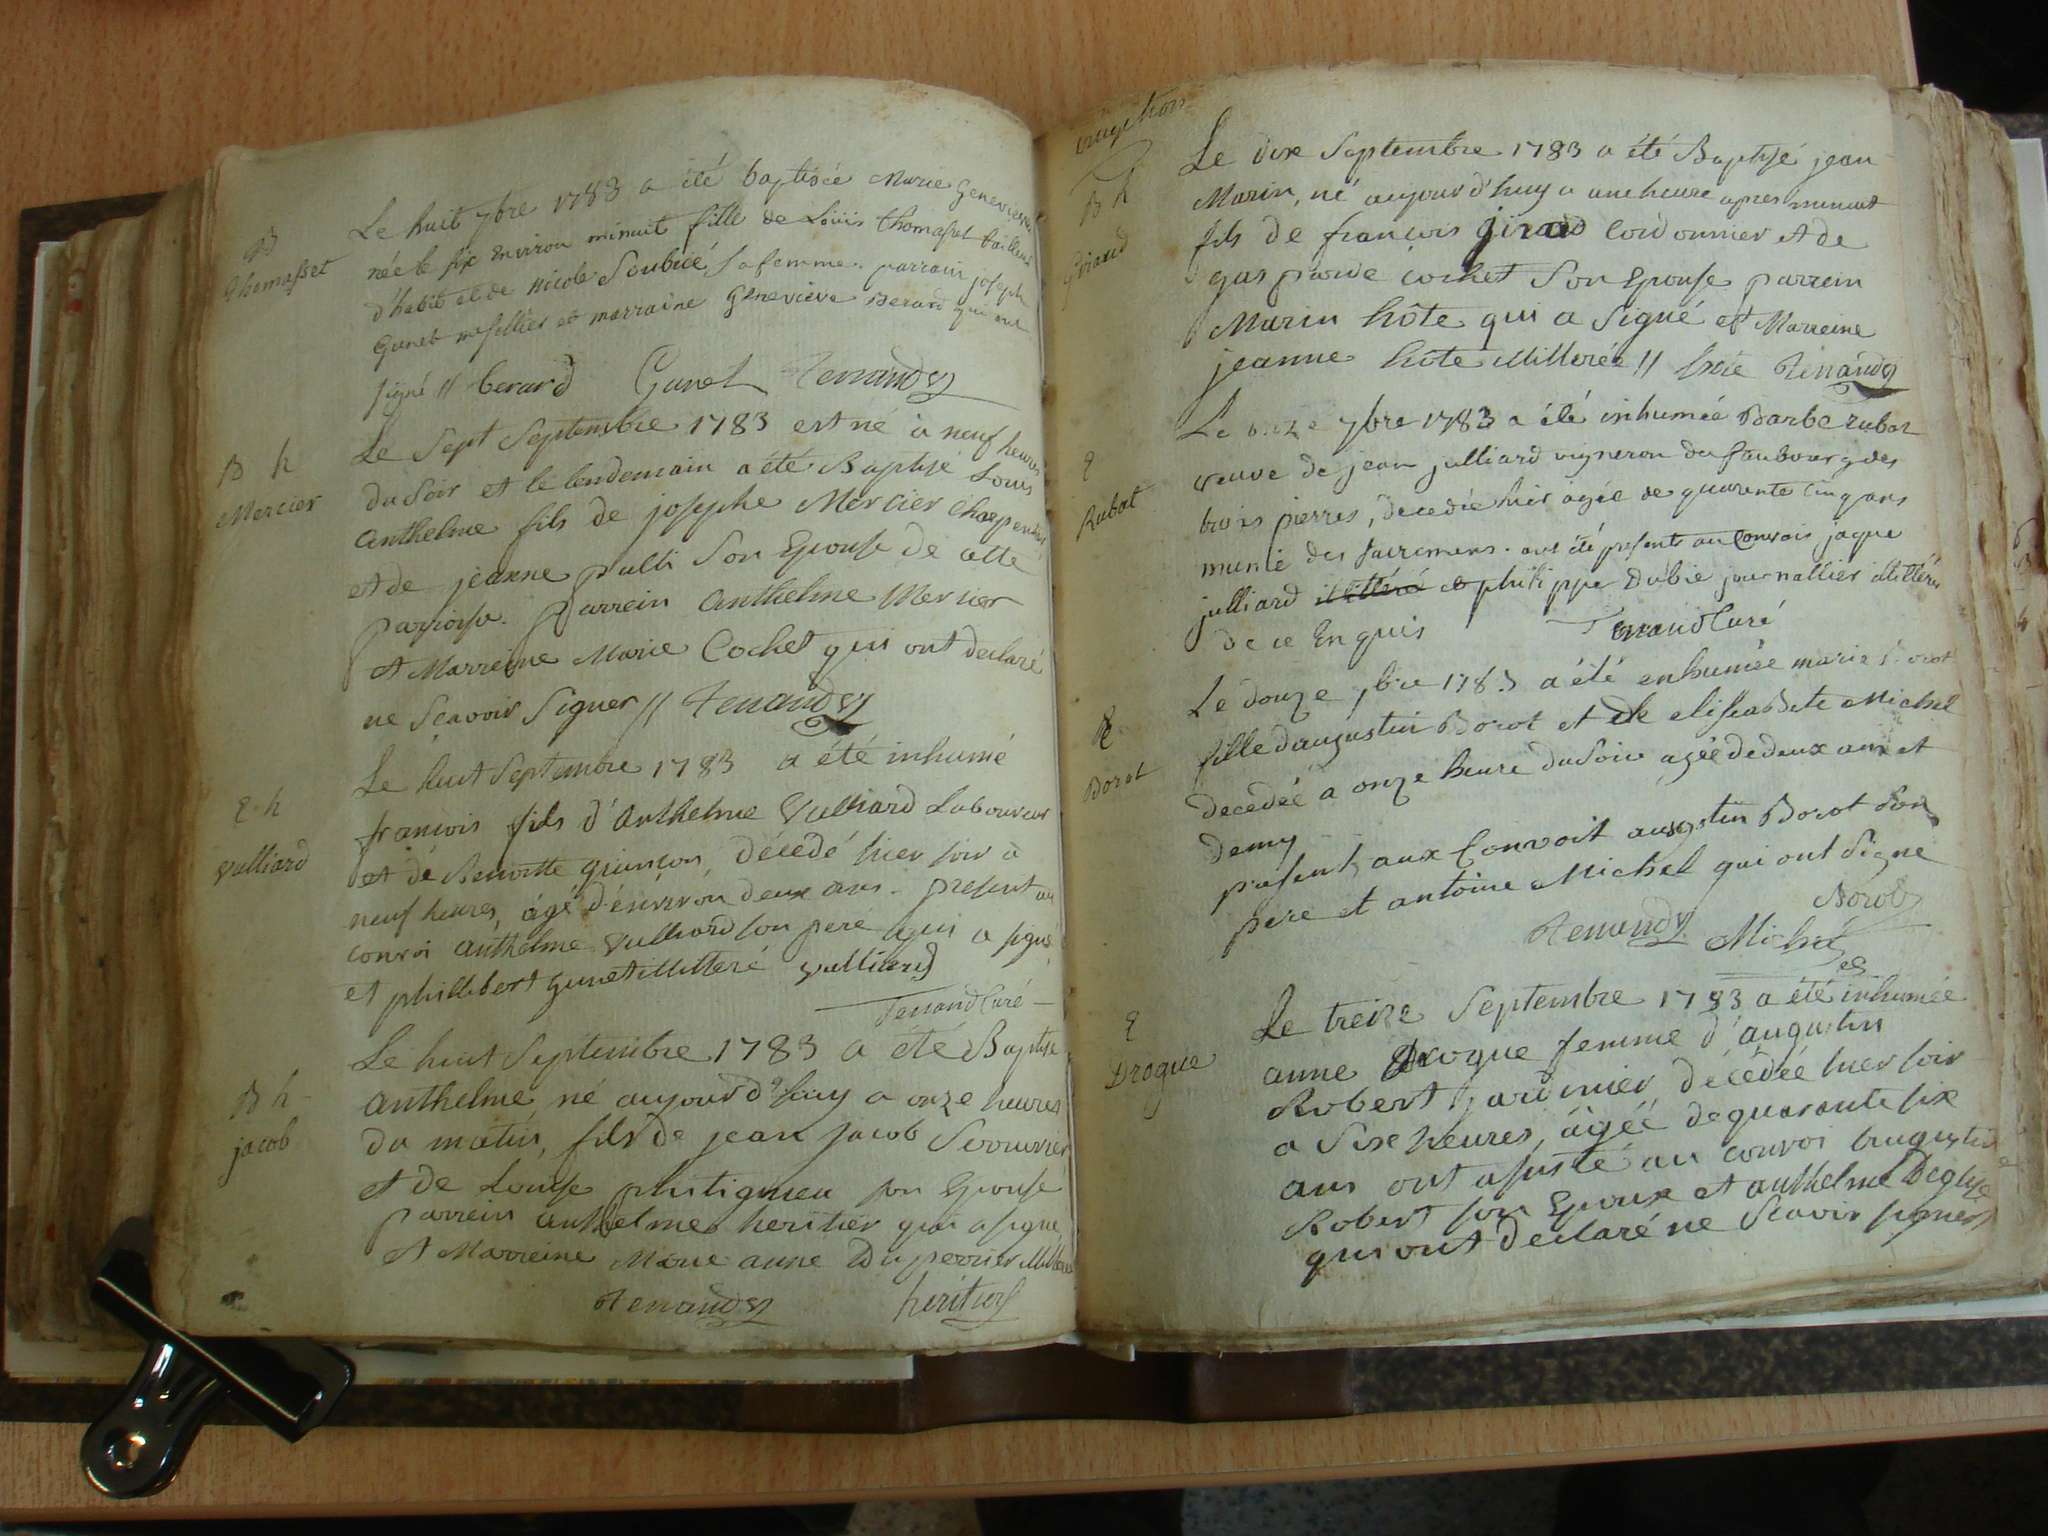 B
thomasset
Le huit 7bre 1783 a été baptisée Marie Genevieve
née le six environ minuit fille de Louis thomasset tailleur
d'habits et de nicole Soubice, sa femme. parrain joseph
Gunet et marraine Genevieve Berard qui ont
signé // berard Gunet
B h
Mercier
Le Sept Septembre 1783 est né à neuf heures
du Soir et le lendemain a été Baptisé Louis
anthelme fils de josephe Mercier charpentier
et de jeanne pulli Son Epouse de cette
paroisse. parrein anthelme Mercier
et Marreine Marie Cochet qui ont declaré
ne Scavoir Signer //
E h
vulliard
Le huit Septembre 1783 a été inhumé
françois fils d'anthelme vulliard Laboureur
et de Benoitte décédé hier soir à
neuf heures, agé d'environ deux ans. present au
convoi anthelme vulliard son pere qui a signé
et phillibert gunet illitteré vulliard
Tenand Curé
B h
jacob
Le huit Septembre 1783 a été Baptisé
anthelme né aujourd'huy a onze heures
du matin, fils de jean jacob Serrurier
et de Louise phitigneu son Epouse
parrein anthelme heritier qui a signé,
et Marreine Marie anne Duperrier
heritier
B h
Girard
Le dix Septembre 1783 a été Baptisé jean
Marin, né aujourd'huy a une heure apres minuit
fils de françois girard Cordonnier et de
gasparde cochet Son Epouse parrein
Marin hôte qui a Signé et Marreine
jeanne hôte illiterée // hote
E
Rubat
Le onze 7bre 1783 a été inhumée Barbe rubat
veuve de jean julliard vigneron du faubourg des
trois pierres, decedée hier agée de quarante cinq ans
munie des sacremens. ont été presents au Convois jaque
julliard illitéré et philippe Dubie journallier illittérés
de ce Enquis Tenand Curé
E
Borot
Le douze 7bre 1783 a été enhumée marie Borot
fille daugustin Borot et de elisabete Michel
decedée a onze heure du Soir agée de deux ans et
demy
present aux Convoit augustin Borot son
pere et antoine Michel qui ont Signe
Borot
Michel
E
Drogue
Le treize Septembre 1783 a été inhumée
anne Drogue femme d'augustin
Robert jardinier, décédée hier soir
a Six heures, âgée de quarante six
ans ont assisté au convoi augustin
Robert son Epoux et anthelme Deglise
qui ont declaré ne Scavoir signer